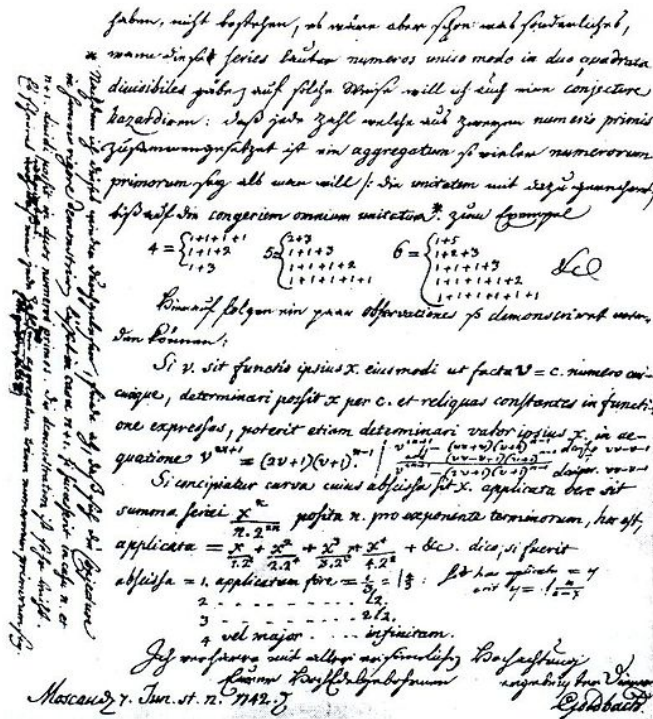 haben, nicht bestehen, es wäre aber schon was sonderliches,
wann diese series lauter numeros unico modo in duo quadrata
divisibiles gäbe; auf solche Weise will ich auch eine conjecture
hazardiren: daß jede Zahl welche aus zweyen numeris primis
zusammengesetzet ist ein aggregatum so vieler numerorum
primorum sey als man will /: die unitatem mit dazu gerechnet:/
biß auf die congeriem omnium unitatum* zum Exempel
4 = { 1+1+1+1
1+1+2
1+3
5 = { 2+3
1+1+3
1+1+1+2
1+1+1+1+1
6 = { 1+5
1+2+3
1+1+1+3
1+1+1+1+2
1+1+1+1+1+1
&c
Hierauf folgen ein paar observationes so demonstriret wer-
den können:
Si v. sit functio ipsius x. eiusmodi ut facta v = c. numero cui-
cunque, determinari possit x per c. et reliquas constantes in functi-
one expressas, poterit etiam determinari valor ipsius x. in ae-
quatione v^{2n+1} = (2v+1)(v+1)^{n-1}.
Si concipiatur curva cuius abscissa sit x. applicata vero sit
summa seriei x^n/n.2^{2n} posita n. pro exponente terminorum, hoc est,
applicata = x/1.2^2 + x^2/2.2^4 + x^3/3.2^6 + x^4/4.2^8 + &c. dico, si fuerit
abscissa = 1. applicatam fore = l 4/3
2 . . . . . . . . l2.
3 . . . . . . . . 2l2.
4 vel major . . . . infinitam.
Ich verharre mit aller ersinnlichen Hochachtung
Eurer HochEdelgebohrnen
ergebenster Diener
Goldbach.
Moscau d. 7. Jun. st. n. 1742.
* Nachdem ich dieses wieder durchgelesen, finde ich, daß sich die conjecture
in summo rigore demonstriren läßet in casu n+1. si successerit in casu n. et
n+1. dividi possit in duos numeros primos. Die demonstration ist sehr leicht.
Es scheinet wenigstens, daß eine jede Zahl ein aggregatum trium numerorum primorum sey.